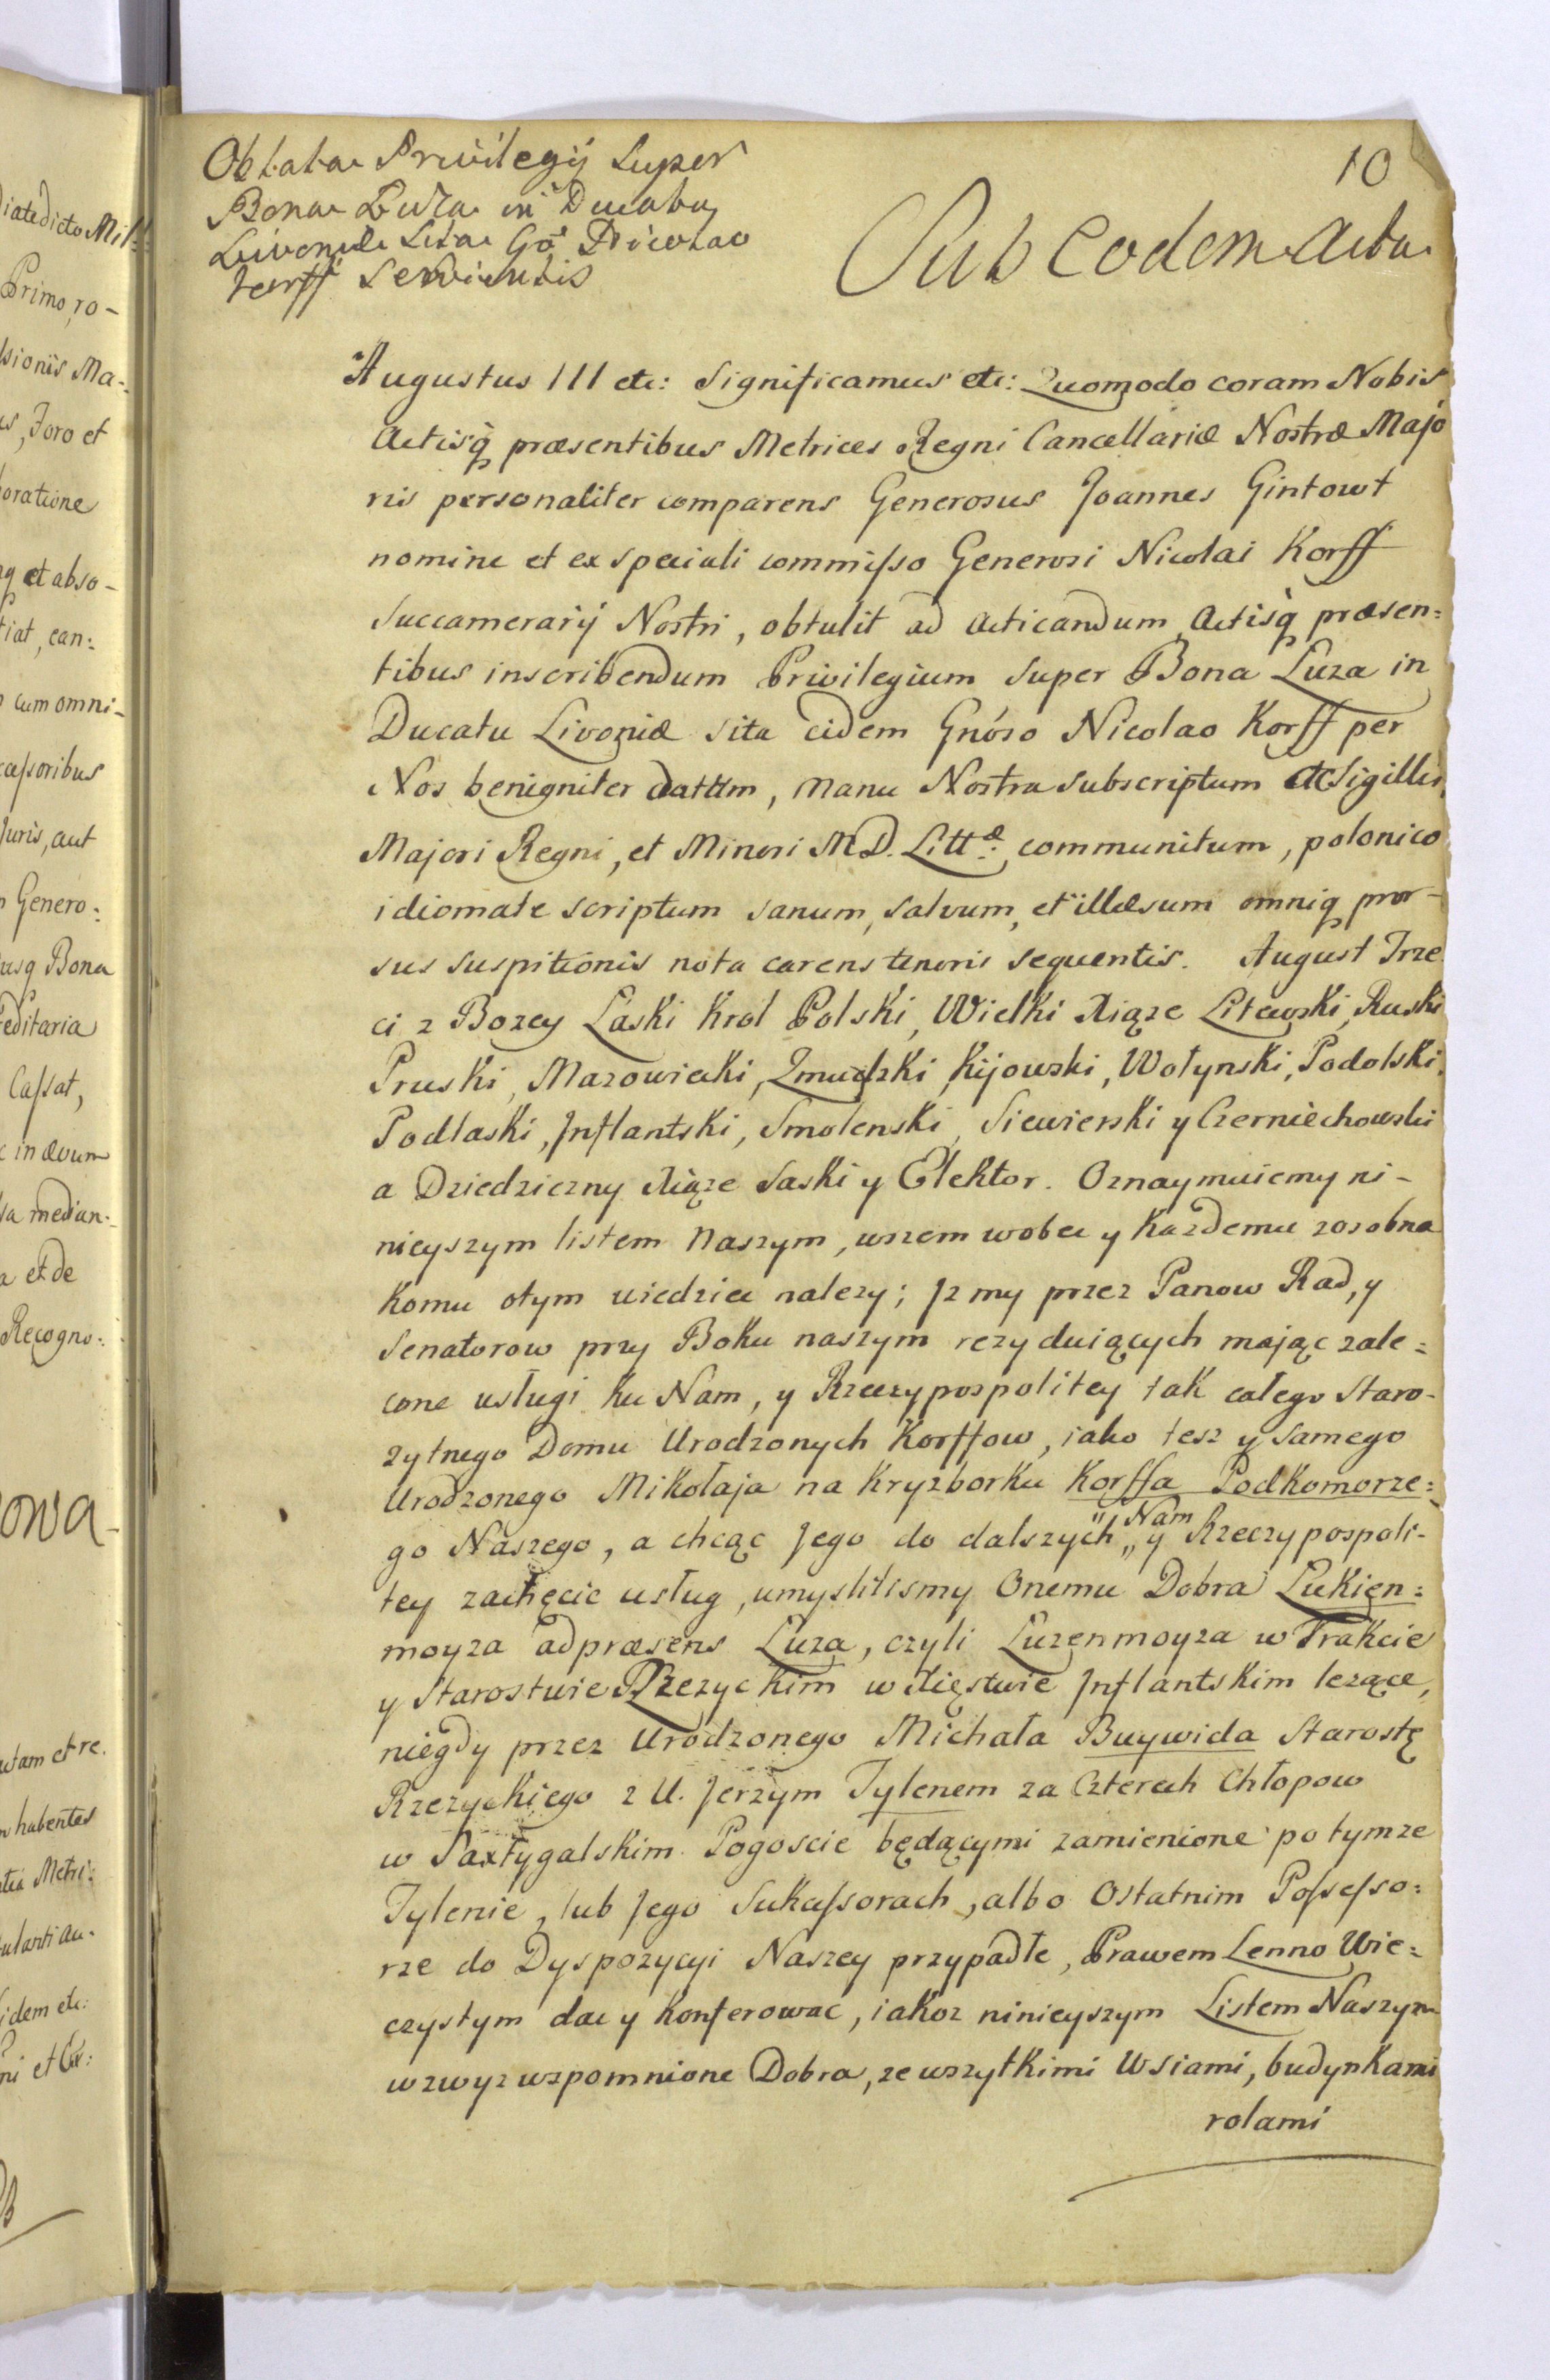 10
Oblata Privilegij super
Bona Luza in Ducatu
Livoniæ sita Gó Nicolao
Korff servientis
Sub eodem Actu
Augustus III etc: Significamus etc: Quomodo coram Nobis
Actisq̀ præsentibus Metrices Regni Cancellariæ Nostræ Majo
ris personaliter comparens Generosus Joannes Gintowt
nomine et ex speciali commiſso Generosi Nicolai Korff
Succamerarij Nostri, obtulit ad acticandum, Actisq̀ præsen:
tibus inscribendum Privilegium super Bona Luza in
Ducatu Livoniæ sita eidem Gnóso Nicolao Korff per
Nos benigniter dattum, manu Nostra subscriptum et Sigillis
Majori Regni, et Minori M.D. Littæ: communitum, polonico
idiomate scriptum sanum, salvum, et illæsum omniq̀ pror-
sus suspitionis nota carens tenoris sequentis. August Trze
ci z Bozey Łaski Krol Polski, Wielki Xiąze Litewski, Ruski
Pruski, Mazowiecki, Zmudzki, Kijowski, Wołynski, Podolski,
Podlaski, Jnflantski, Smolenski, Siewierski y Czerniechowski
a Dziedziczny Xiąze Saski y Elektor. Oznaymuiemy ni-
nieyszym listem Naszym, wszem wobec y Kazdemu zosobna
Komu otym wiedziec nalezy; Jz my przez Panow Rad, y
Senatorow przy Boku naszym rezyduiących mając zale:
cone usługi Ku Nam, y Rzeczypospolitey tak całego Staro-
zytnego Domu Urodzonych Korffow, iako tesz y samego
Urodzonego Mikołaja na Kryzborku Korffa Podkomorze:
go Naszego, a chcąc Jego do dalszych „Nam„ y Rzeczypospoli-
tey zachęcic usług, umyslilismy Onemu Dobra Lukien:
moyza adpræsens Luza, czyli Luzenmoyza w Trakcie
y Starostwie Rzezyckim w Xięstwie Jnflantskim lezące,
niegdy przez Urodzonego Michała Buywida Starostę
Rzezyckiego z U. Jerzym Tylenem za Czterech Chłopow
w Paxtygalskim Pogoscie będącymi zamienione po tymze
Tylenie, lub Jego Sukceſsorach, albo Ostatnim Poſseſso:
rze do Dyspozycyi Naszey przypadłe, Prawem Lenno Wie:
czystym dac y Konferowac, iakoz ninieyszym Listem Naszym
wzwyz wspomnione Dobra, ze wszytkimi Wsiami, budynkami
rolami